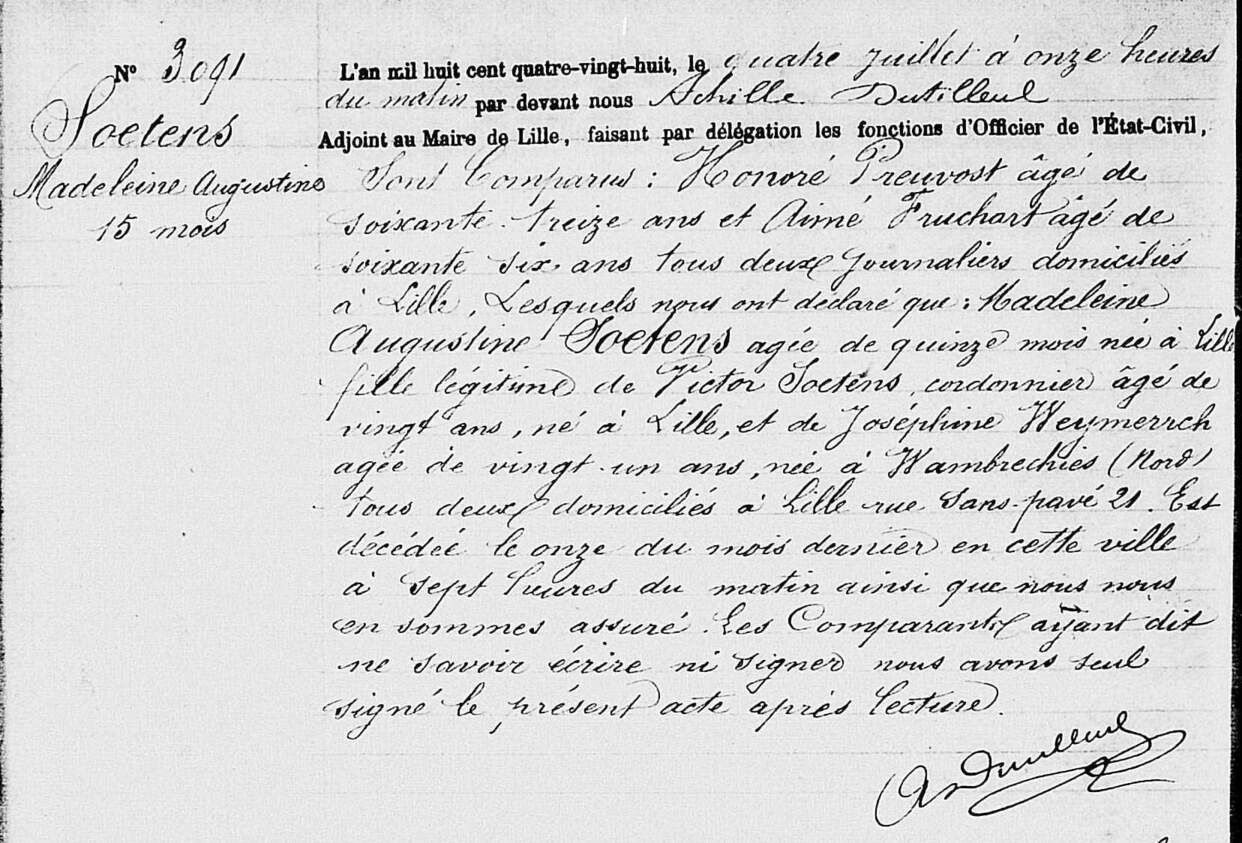 N° 3091
Soetens
Madeleine Augustine
15 mois
L'an mil huit cent quatre-vingt-huit, le quatre Juillet à onze heures
du matin par devant nous Achille Dutilleul
Adjoint au Maire de Lille, faisant par délégation les fonctions d'Officier de l'État-Civil,
Sont Comparus : Honoré Preuvost âgé de
soixante treize ans et Aimé Fruchart âgé de
soixante six ans tous deux Journaliers domiciliés
à Lille, Lesquels nous ont déclaré que : Madeleine
Augustine Soetens agée de quinze mois née à Lille
fille légitime de Victor Soetens, cordonnier âgé de
vingt ans, né à Lille, et de Joséphine Weymerrch
agée de vingt un ans, née à Wambrechies (Nord)
tous deux domiciliés à Lille rue Sans-pavé 21. Est
décédée le onze du mois dernier en cette ville
à sept heures du matin ainsi que nous nous
en sommes assuré. Les Comparants ayant dit
ne savoir écrire ni signer nous avons seul
signé le présent acte après lecture.
A Dutilleul